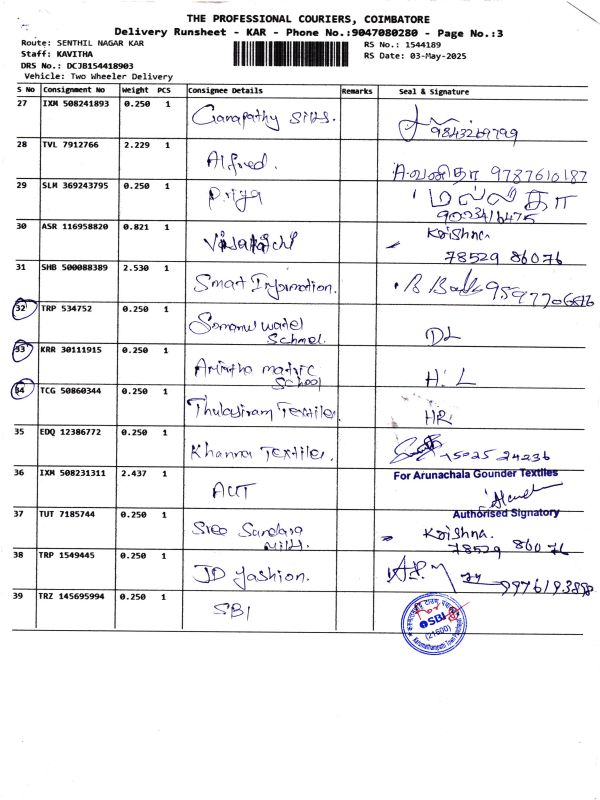 THE PROFESSIONAL COURIERS, COIMBATORE
Delivery Runsheet - KAR - Phone No.:9047080280 - Page No.:3
Route: SENTHIL NAGAR KAR
RS No.: 1544189
Staff: KAVITHA
RS Date: 03-May-2025
DRS No.: DCJB154418903
Vehicle: Two Wheeler Delivery
S No Consignment No Weight PCS Consignee Details Remarks Seal & Signature
27 IXM 508241893 0.250 1 Ganapathy Silks. 9843269799
28 TVL 7912766 2.229 1 Alfred. A.வனிதா 9787610187
29 SLM 369243795 0.250 1 Priya மல்லிகா
9023416475
30 ASR 116958820 0.821 1 Krishna.
78529 86076
31 SHB 500088389 2.530 1 Smart Information. 9597706676
32 TRP 534752 0.250 1 School. DL
33 KRR 30111915 0.250 1 Amirtha matric
School H.L
34 TCG 50860344 0.250 1 Thulasiram Textiles HR
35 EDQ 12386772 0.250 1 Khanna Textiles. 75025 24236
36 IXM 508231311 2.437 1 AUT For Arunachala Gounder Textiles
Authorised Signatory
37 TUT 7185744 0.250 1 Sree Sundara
Mills. Krishna.
78529 86076
38 TRP 1549445 0.250 1 JD Fashion.
39 TRZ 145695994 0.250 1 SBI
SBI
(21600)